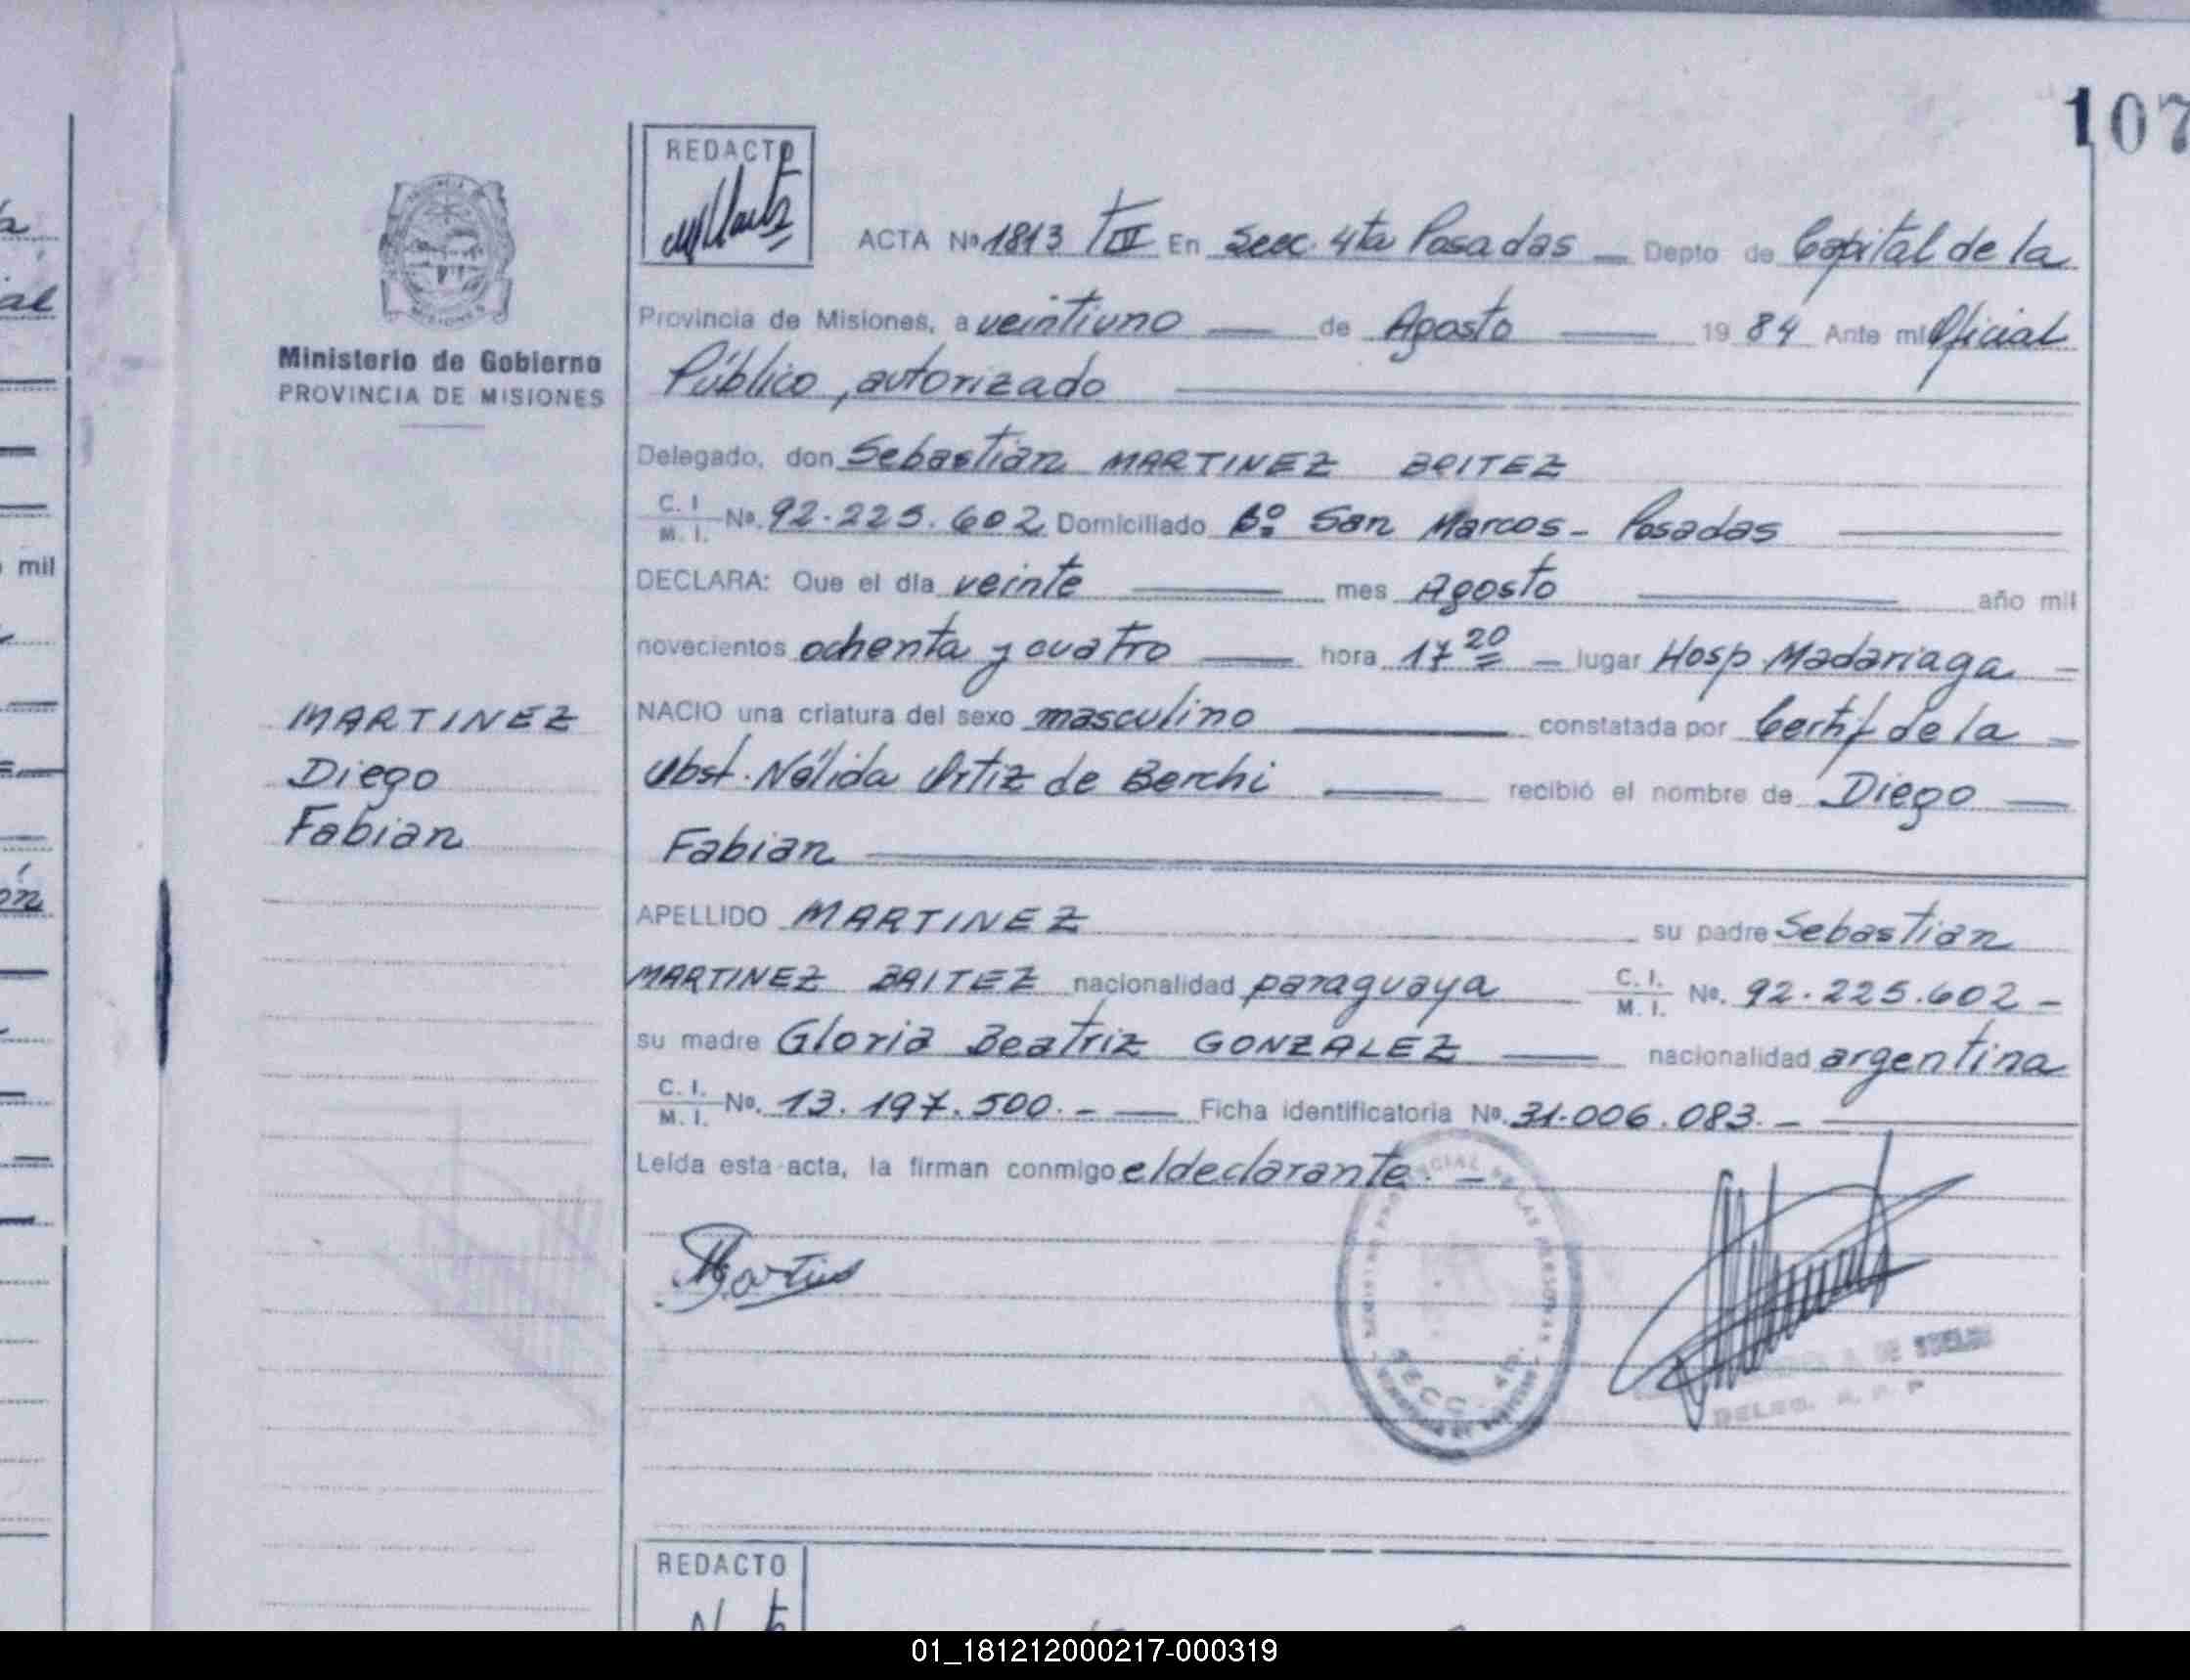 107
REDACTO
ACTA Nº 1813 TIII En Secc. 4ta Posadas — Depto de Capital de la
Provincia de Misiones, a veintiuno — de Agosto — 1984 Ante mi Oficial
Público, autorizado
Ministerio de Gobierno
PROVINCIA DE MISIONES
Delegado, don Sebastián MARTINEZ BRITEZ
C. I. / M. I. Nº. 92.225.602 Domiciliado Bº San Marcos - Posadas
DECLARA: Que el día veinte — mes Agosto — año mil
novecientos ochenta y cuatro — hora 17 20 — lugar Hosp. Madariaga —
NACIO una criatura del sexo masculino — constatada por Certif. de la —
Obst. Nélida Ortiz de Berchi — recibió el nombre de Diego —
Fabian
MARTINEZ
Diego
Fabian
APELLIDO MARTINEZ su padre Sebastián
MARTINEZ BRITEZ nacionalidad paraguaya C. I. / M. I. Nº. 92.225.602 —
su madre Gloria Beatriz GONZALEZ — nacionalidad argentina
C. I. / M. I. Nº. 13.197.500.- — Ficha identificatoria Nº. 31.006.083.-
Leída esta acta, la firman conmigo el declarante. —
SECC. 4ta.
DELEG. R. P. P
REDACTO
mil
01_181212000217-000319